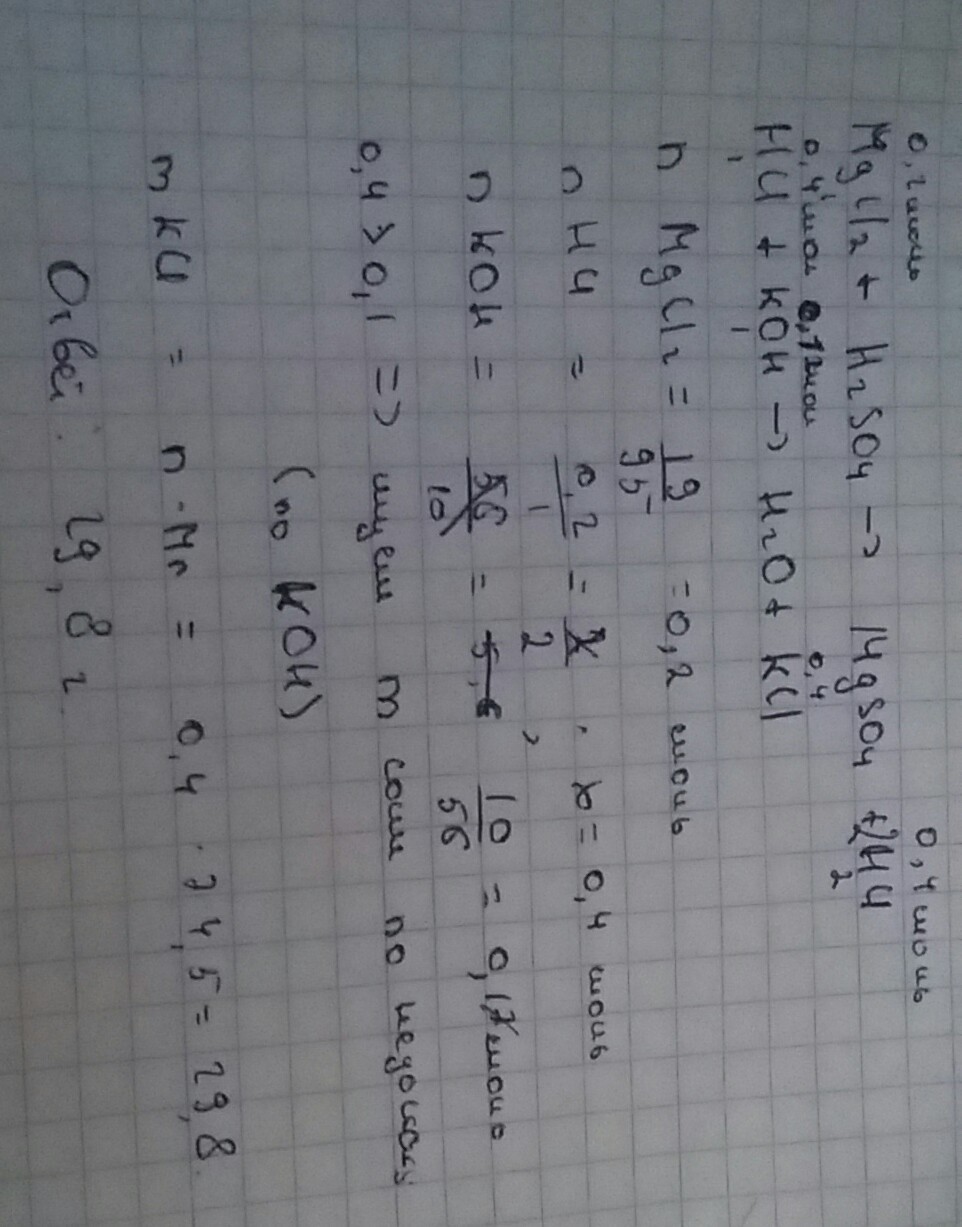 0,2 моль 0,4 моль
MgCl2 + H2SO4 → MgSO4 + 2HCl
2
0,4 мол 0,1 мол 0,4
HCl + KOH → H2O + KCl
n MgCl2 = 19/95 = 0,2 моль
n HCl = 0,2/1 = x/2 . x = 0,4 моль
n KOH = 56/10 = 5,6 , 10/56 = 0,1 моль
0,4 > 0,1 => ищем m соли по недостатку
(по KOH)
m KCl = n · Mr = 0,4 · 74,5 = 29,8
Ответ: 29,8 г.